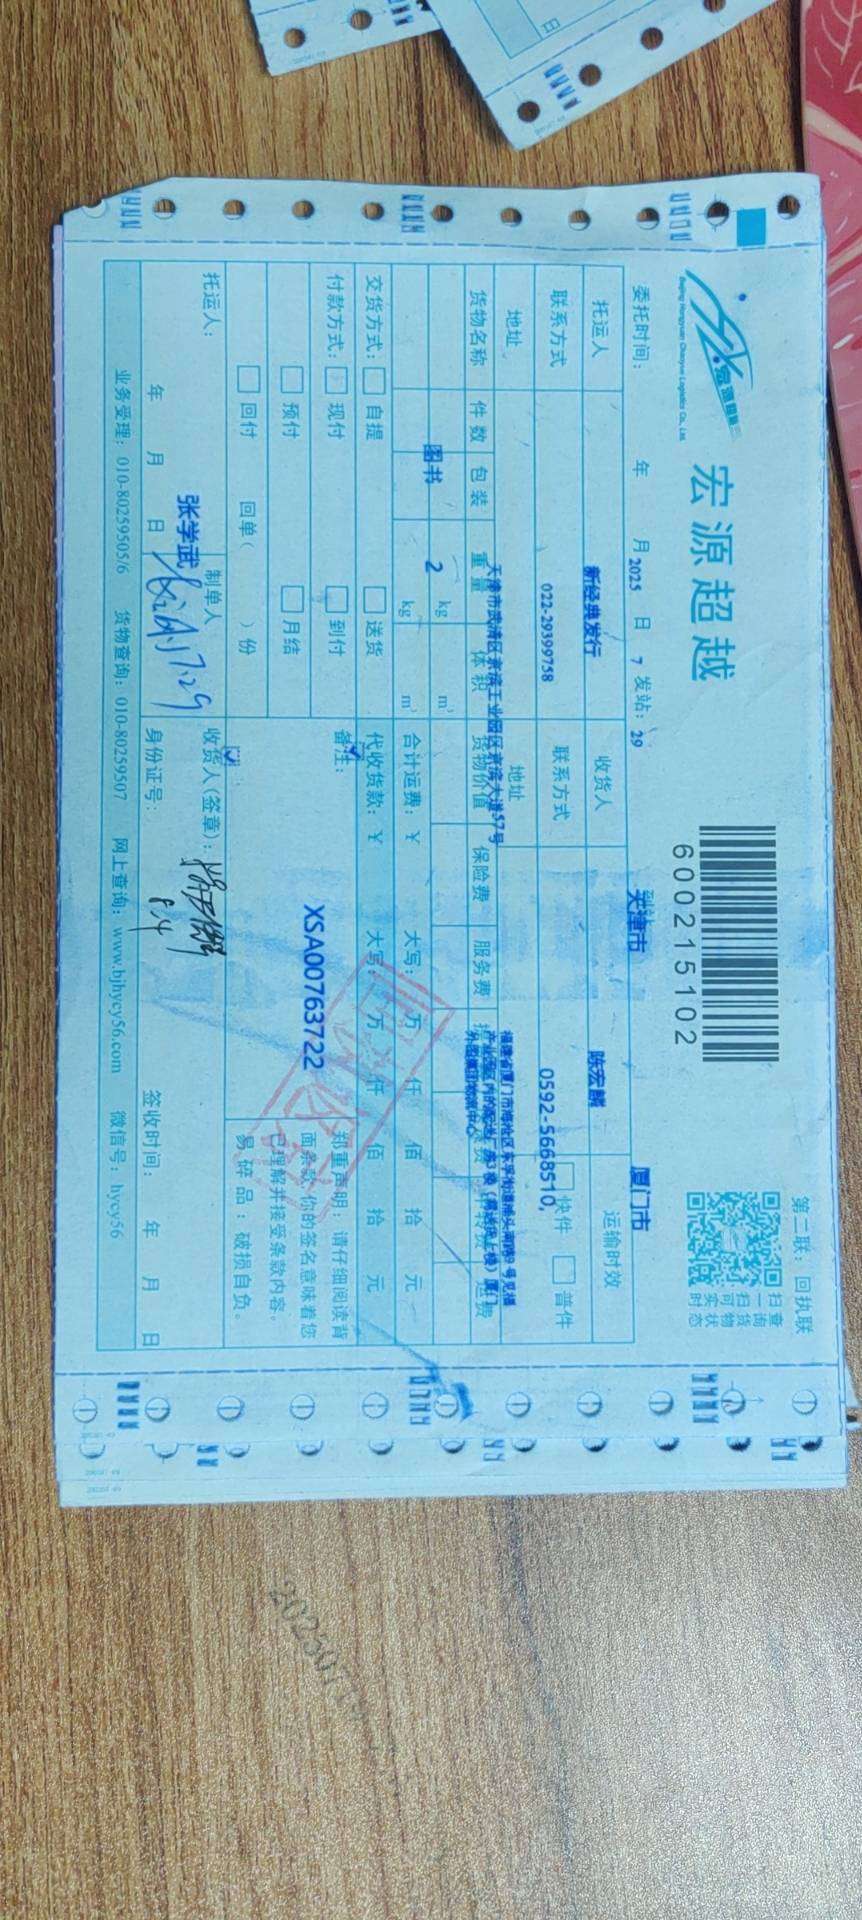 宏源超越
Beijing Hongyuan Chaoyue Logistics Co., Ltd.
600215102
第二联：回执联
扫一扫可实时
查询货物状态
委托时间： 年 月 2025 日 7 发站：29 天津市 厦门市
托运人 新经典发行 收货人 陈宏麟 运输时效
联系方式 022-29399758 联系方式 0592-5668510, 快件 普件
地址 天津市武清区京滨工业园区京滨大道57号 地址
货物名称 件数 包装 重量 体积 货物价值 保险费 服务费
图书 2 kg m³
kg m³ 合计运费：￥ 大写： 万 仟 佰 拾 元
交货方式： 自提 送货 代收货款：￥ 大写： 万 仟 佰 拾 元
付款方式： 现付 到付 备注：
预付 月结
回付 回单（ ）份
XSA00763722
郑重声明：请仔细阅读背
面条款，你的签名意味着您
已理解并接受条款内容。
易碎品：破损自负。
托运人： 张学武 制单人 收货人(签章)：
7.29
年 月 日 身份证号： 签收时间： 年 月 日
业务受理：010-80259505/6 货物查询：010-80259507 网上查询：www.bjhycy56.com 微信号：hycy56